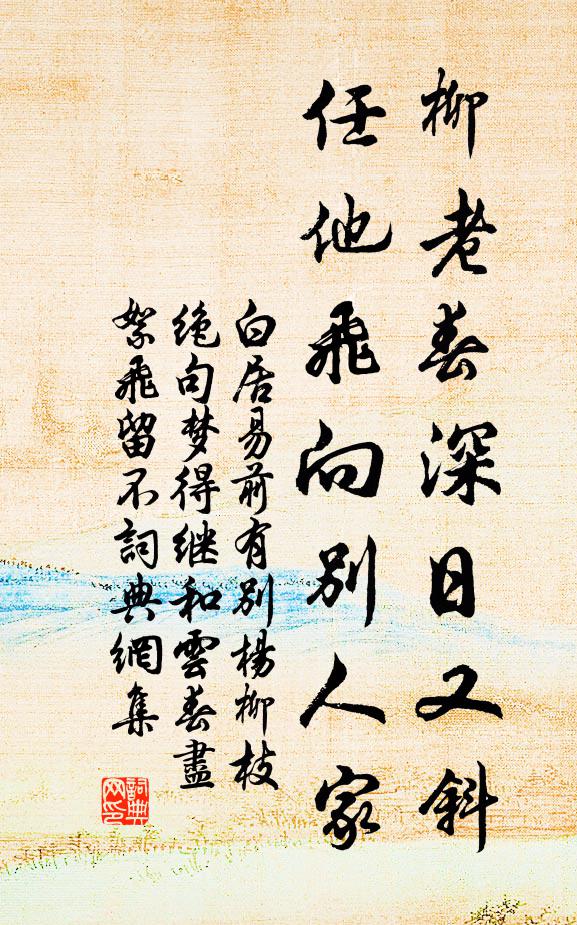 柳老春深日又斜
任他飛向別人家
白居易前有別楊柳枝
绝句梦得继和雲春盡
絮飛留不詞典網集
詞典网印